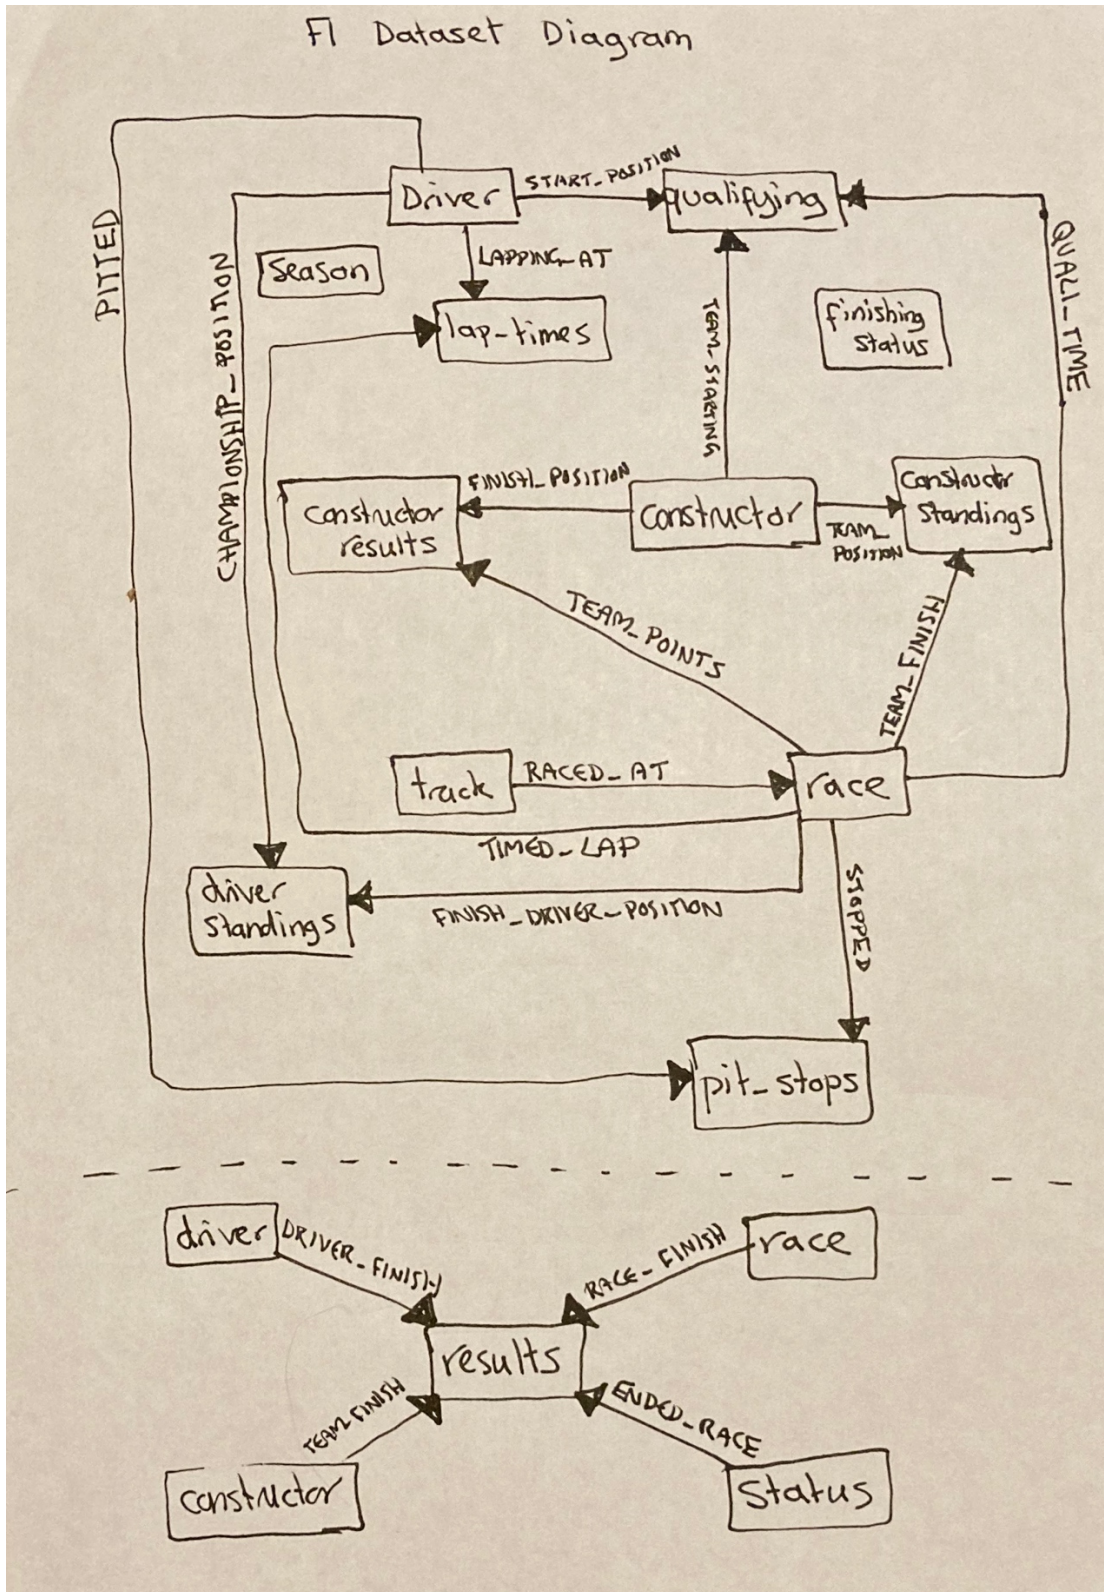 F1 Dataset Diagram
PITTED
Driver
START_POSITION
qualifying
CHAMPIONSHIP_POSITION
Season
LAPPING_AT
lap-times
TEAM_STARTING
finishing
status
QUALI_TIME
constructor
results
FINISH_POSITION
constructor
TEAM_
POSITION
Constructr
Standings
TEAM_POINTS
TEAM_FINISH
track
RACED_AT
race
TIMED_LAP
driver
standings
FINISH_DRIVER_POSITION
STOPPED
pit_stops
driver
DRIVER_FINISH
RACE_FINISH
race
results
TEAM_FINISH
ENDED_RACE
constructor
Status